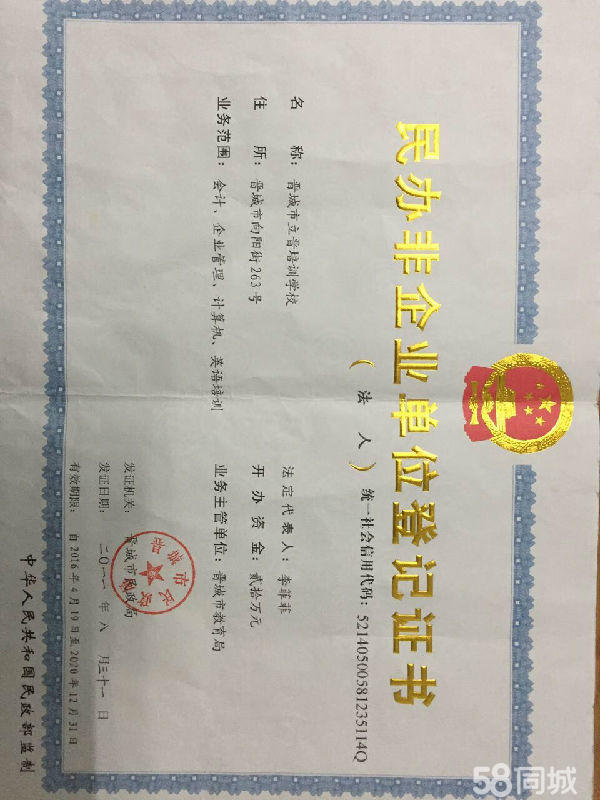 民办非企业单位登记证书
（法人）
统一社会信用代码：52140500581235114Q
名称：晋城市立晋培训学校
住所：晋城市向阳街263号
业务范围：会计、企业管理、计算机、英语培训
法定代表人：李菲菲
开办资金：贰拾万元
业务主管单位：晋城市教育局
发证机关：晋城市民政局
发证日期：二〇一一年八月三十一日
有效期限：自2016年4月19日至2020年12月31日
中华人民共和国民政部监制
58同城